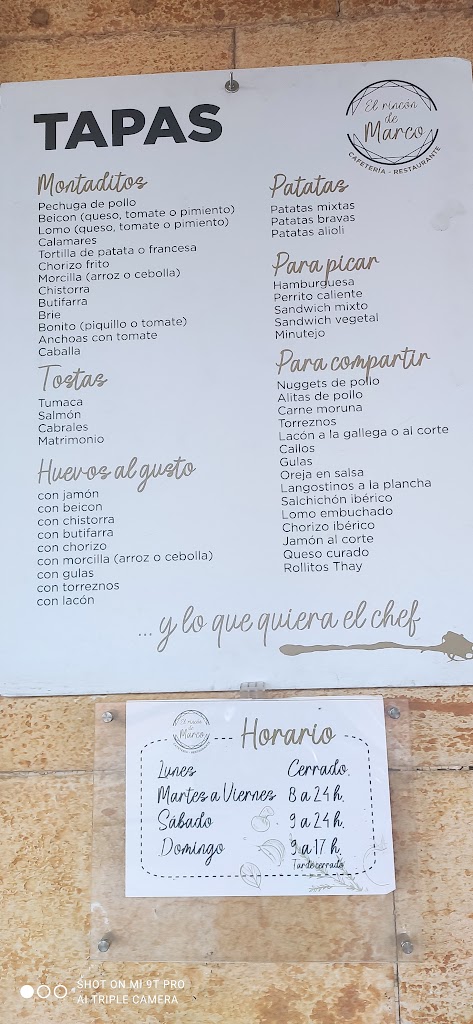 TAPAS
El rincón
de
Marco
CAFETERÍA - RESTAURANTE
Montaditos
Pechuga de pollo
Beicon (queso, tomate o pimiento)
Lomo (queso, tomate o pimiento)
Calamares
Tortilla de patata o francesa
Chorizo frito
Morcilla (arroz o cebolla)
Chistorra
Butifarra
Brie
Bonito (piquillo o tomate)
Anchoas con tomate
Caballa
Tostas
Tumaca
Salmón
Cabrales
Matrimonio
Huevos al gusto
con jamón
con beicon
con chistorra
con butifarra
con chorizo
con morcilla (arroz o cebolla)
con gulas
con torreznos
con lacón
Patatas
Patatas mixtas
Patatas bravas
Patatas alioli
Para picar
Hamburguesa
Perrito caliente
Sandwich mixto
Sandwich vegetal
Minutejo
Para compartir
Nuggets de pollo
Alitas de pollo
Carne moruna
Torreznos
Lacón a la gallega o al corte
Callos
Gulas
Oreja en salsa
Langostinos a la plancha
Salchichón ibérico
Lomo embuchado
Chorizo ibérico
Jamón al corte
Queso curado
Rollitos Thay
... y lo que quiera el chef
El rincón
de
Marco
CAFETERÍA - RESTAURANTE
Horario
Lunes Cerrado
Martes a Viernes 8 a 24 h.
Sábado 9 a 24 h.
Domingo 9 a 17 h.
Tarde cerrado
SHOT ON MI 9T PRO
AI TRIPLE CAMERA